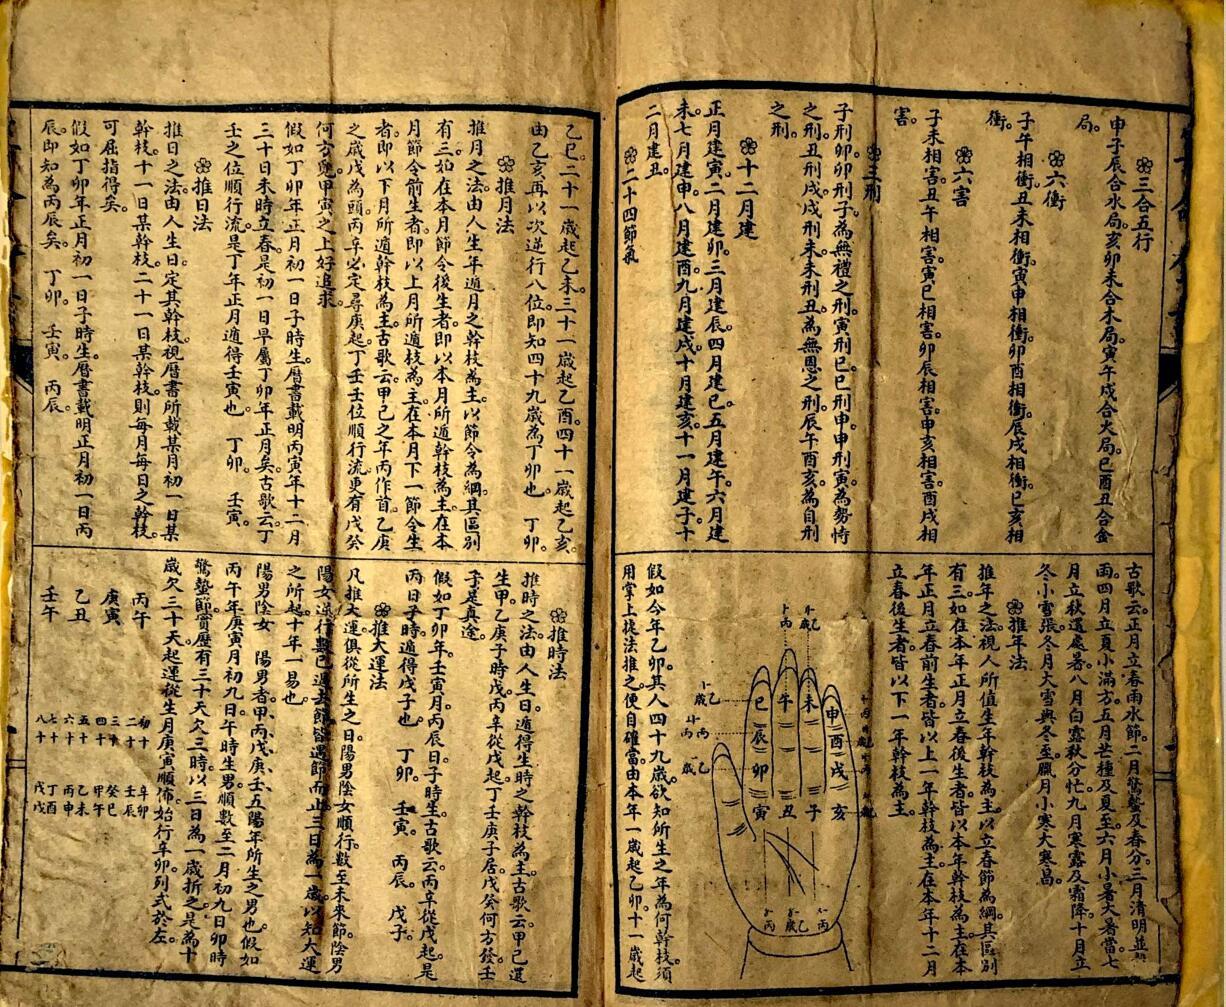 三合五行
申子辰合水局。亥卯未合木局。寅午戌合火局。巳酉丑合金
局。
六衝
子午相衝。丑未相衝。寅申相衝。卯酉相衝。辰戌相衝。巳亥相
衝。
六害
子未相害。丑午相害。寅巳相害。卯辰相害。申亥相害。酉戌相
害。
三刑
子刑卯。卯刑子。為無禮之刑。寅刑巳。巳刑申。申刑寅。為勢恃
之刑。丑刑戌。戌刑未。未刑丑。為無恩之刑。辰午酉亥。為自刑
之刑。
十二月建
正月建寅。二月建卯。三月建辰。四月建巳。五月建午。六月建
未。七月建申。八月建酉。九月建戌。十月建亥。十一月建子。十
二月建丑。
二十四節氣
古歌云。正月立春雨水節。二月驚蟄及春分。三月清明並穀
雨。四月立夏小滿方。五月芒種及夏至。六月小暑大暑當。七
月立秋還處暑。八月白露秋分忙。九月寒露及霜降。十月立
冬小雪漲。冬月大雪與冬至。臘月小寒大寒昌。
推年法
推年之法。視人所值生年幹枝為主。以立春節為綱。其區別
有三。如在本年正月立春後生者。皆以本年幹枝為主。在本
年正月立春前生者。皆以上一年幹枝為主。在本年十二月
立春後生者。皆以下一年幹枝為主。
申
酉
戌
亥
未
子
午
丑
巳
辰
卯
寅
假如今年乙卯。其人四十九歲。欲知所生之年為何幹枝。須
用掌上捷法推之。便自確當。由本年一歲起乙卯。十一歲起
乙巳。二十一歲起乙未。三十一歲起乙酉。四十一歲起乙亥。
由乙亥再以次逆行八位。即知四十九歲為丁卯也。 丁卯。
推月法
推月之法。由人生年遁月之幹枝為主。以節令為綱。其區別
有三。如在本月節令後生者。即以本月所遁幹枝為主。在本
月節令前生者。即以上月所遁枝為主。在本月下一節令生
者。即以下月所遁幹枝為主。古歌云。甲己之年丙作首。乙庚
之歲戊為頭。丙辛必定尋庚起。丁壬壬位順行流。更有戊癸
何方覓。甲寅之上好追求。
假如丁卯年正月初一日子時生。曆書載明丙寅年十二月
三十日未時立春。是初一日早屬丁卯年正月矣。古歌云。丁
壬壬之位順行流。是丁年正月遁得壬寅也。 丁卯。 壬寅。
推日法
推日之法。由人生日定其幹枝。視曆書所載某月初一日某
幹枝。十一日某幹枝。二十一日某幹枝。則每月每日之幹枝。
可屈指得矣。
假如丁卯年正月初一日子時生。曆書載明正月初一日丙
辰。即知為丙辰矣。 丁卯。 壬寅。 丙辰。
推時法
推時之法。由人生日。遁得生時之幹枝為主。古歌云。甲己還
生甲。乙庚丙子時。戊丙辛從戊起。丁壬庚子居。戊癸何方發。壬
子是真途。
假如丁卯年。壬寅月。丙辰日。子時生。古歌云。丙辛從戊起。是
丙日子時遁得戊子也。 丁卯。 壬寅。 丙辰。 戊子。
推大運法
凡推大運。俱從所生之日。陽男陰女順行。數至未來節。陰男
陽女逆行。數已過去節。皆遇節而止。三日為一歲。以知大運
之所起。十年一易也。
陽男陰女 陽男者。甲、丙、戊、庚、壬、五陽年所生之男也。假如
丙午年。庚寅月。初九日。午時生男。順數至二月初九日卯時
驚蟄節。實歷有三十天欠三時。以三日為一歲折之。是為十
歲欠三十天起運。從生月庚寅順佈。始行辛卯。列式於左。
丙午 初十 辛卯
二十 壬辰
庚寅 三十 癸巳
四十 甲午
乙丑 五十 乙未
六十 丙申
壬午 七十 丁酉
八十 戊戌